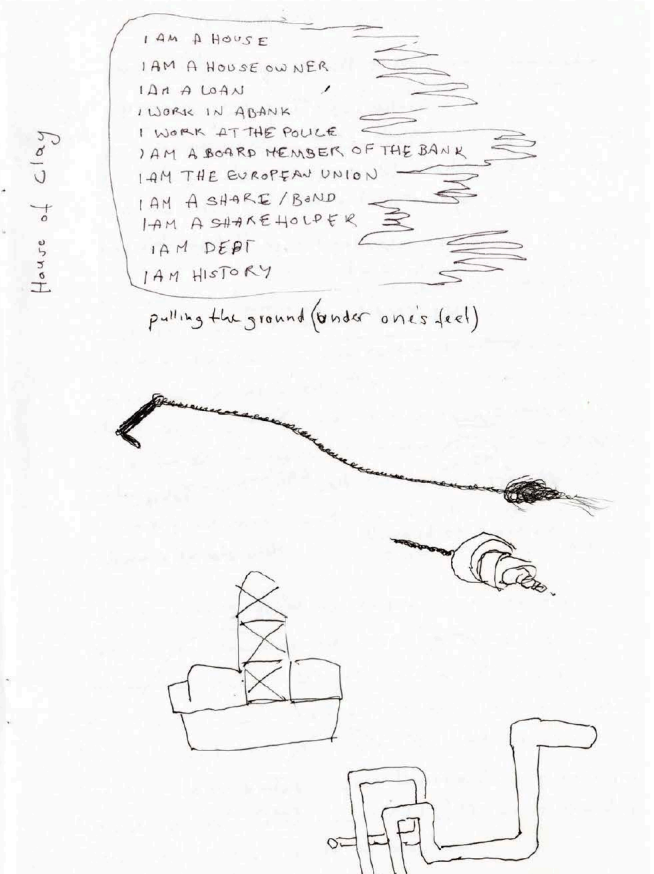 House of Clay
I AM A HOUSE
I AM A HOUSE OWNER
I AM A LOAN
I WORK IN A BANK
I WORK AT THE POLICE
I AM A BOARD MEMBER OF THE BANK
I AM THE EUROPEAN UNION
I AM A SHARE / BOND
I AM A SHAREHOLDER
I AM DEBT
I AM HISTORY
pulling the ground (under one's feet)